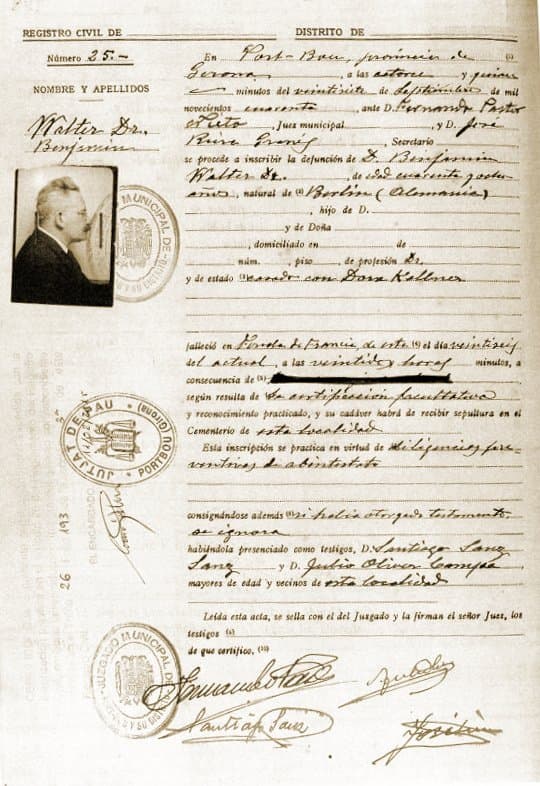 REGISTRO CIVIL DE
DISTRITO DE
Número 25.-
NOMBRE Y APELLIDOS
Walter Dr.
Benjamin
En Port-Bou, provincia de (1)
Gerona, a las catorce y quince
minutos del veintisiete de Septiembre de mil
novecientos cuarenta, ante D. Fernando Pastor
Nieto, Juez municipal, y D. José
, Secretario
se procede a inscribir la defunción de D. Benjamin
Walter Dr. de edad cuarenta y ocho
años, natural de (2) Berlin (Alemania)
, hijo de D.
y de Doña
, domiciliado en de
núm. piso de profesión Dr.
y de estado casado con Dora Kellner
falleció en Fonda de Francia, de esta el día veintiseis
del actual, a las veintidos horas minutos, a
consecuencia de
según resulta de la certificación facultativa
y reconocimiento practicado, y su cadáver habrá de recibir sepultura en el
Cementerio de esta localidad
Esta inscripción se practica en virtud de diligencias pre-
ventivas de abintestato
consignándose además si había otorgado testamento,
se ignora
habiéndola presenciado como testigos, D. Santiago Sanz
Sanz y D. Julio Oliver Compá
mayores de edad y vecinos de esta localidad
Leída esta acta, se sella con el del Juzgado y la firman el señor Juez, los
testigos
de que certifico.
Santiago Sanz
JUTJAT DE PAU
PORTBOU (GIRONA)
EL ENCARGADO
26 193
JUZGADO MUNICIPAL DE
Y SU DISTRITO